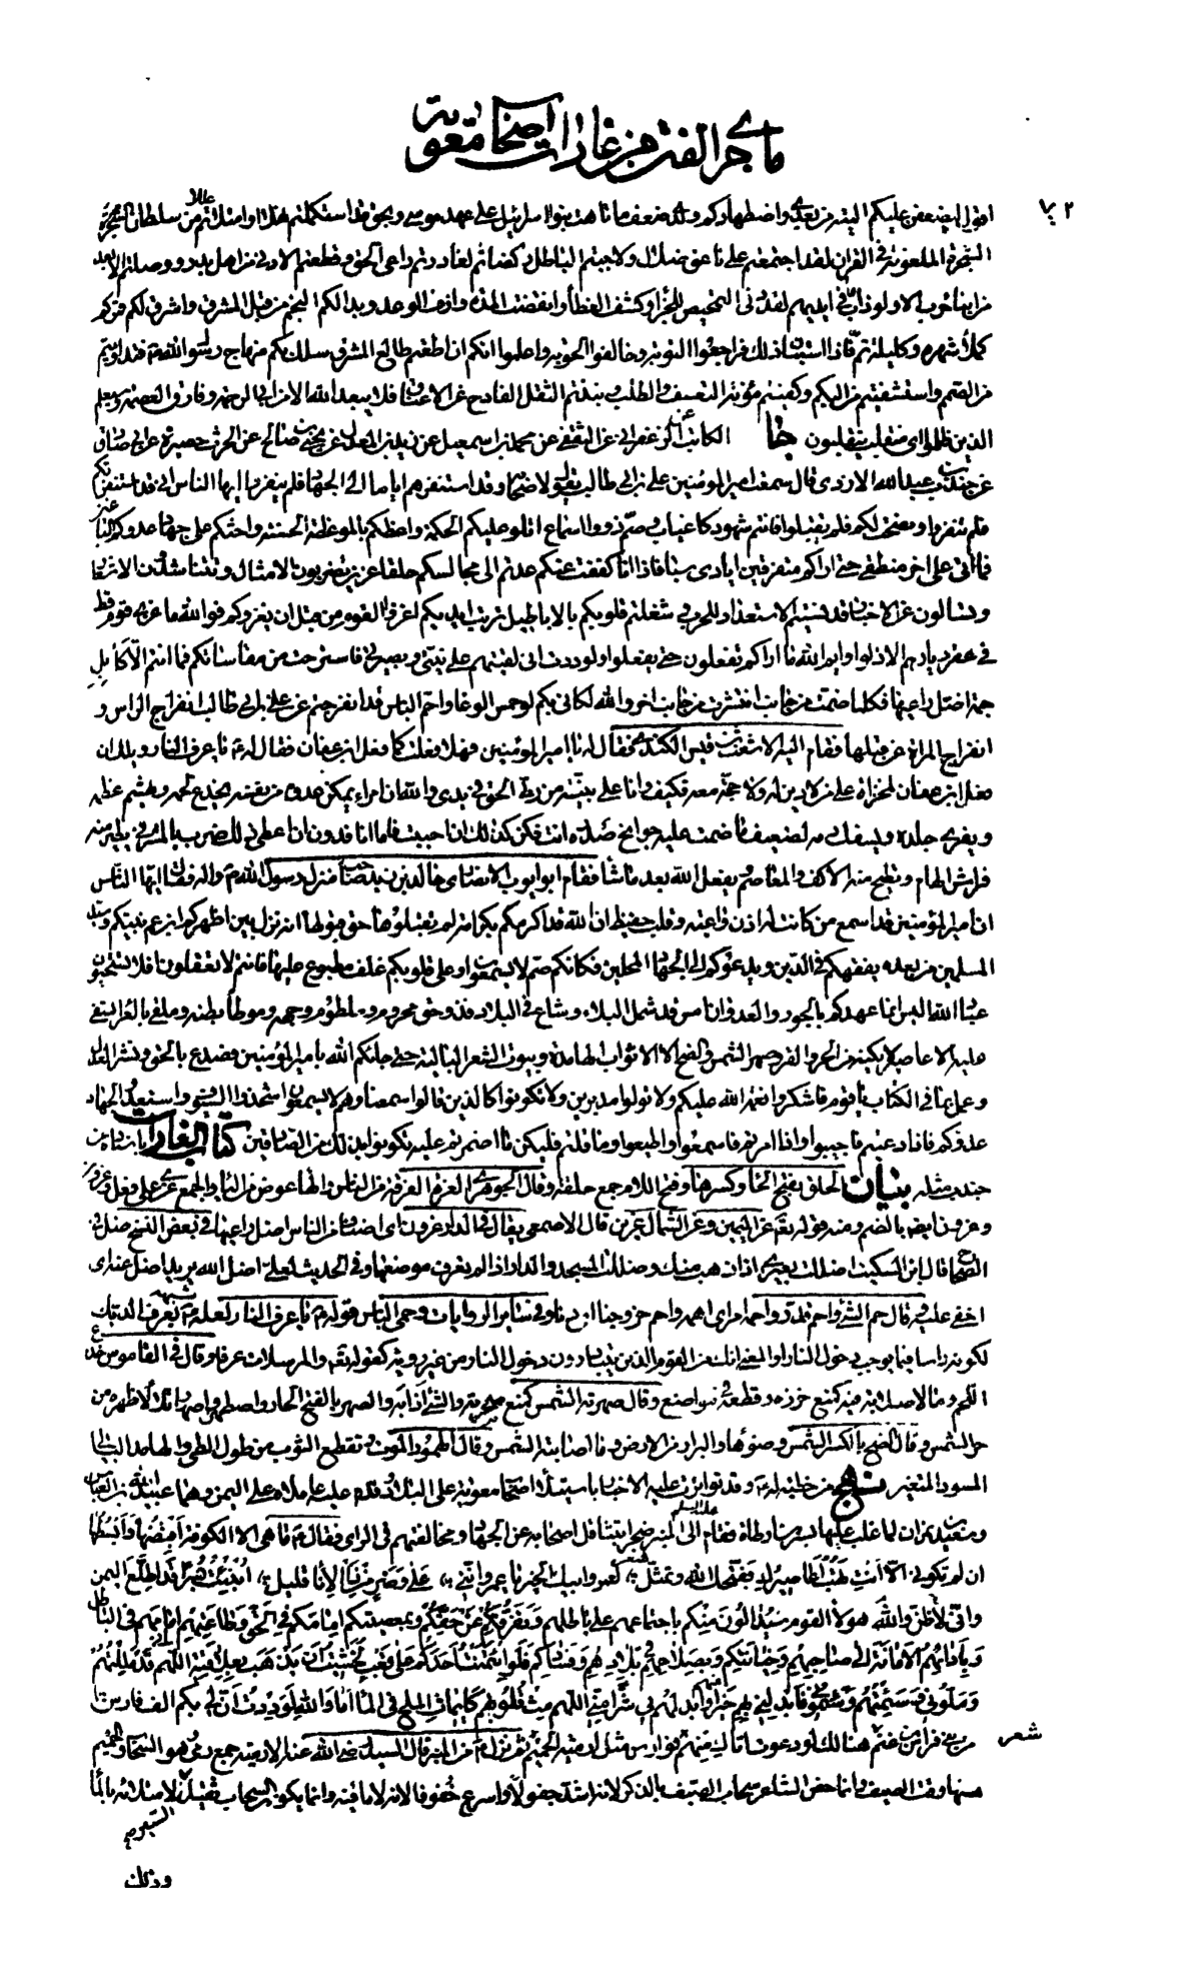 ما جرى من الفتن من غارات اصحاب معوية
٧٠٢
اقول ليضعفن عليكم التيه من بعدى واضطهادكم ولدى ضعف ما تاهت بنو اسرائيل على عهد موسى وبحق لقد استكملتم نهلا وامتلأتم عللا من سلطان الشجرة
الشجرة الملعونة فى القران لقد اجتمعتم على ناعق ضلال ولاجبتم الباطل ركضا ثم لغادرتم داعى الحق وقطعتم الادنى من اهل بدر ووصلتم الابعد
من ابناء حرب الا ولو ذاب ما فى ايديهم لقد دنى التمحيص للجزاء وكشف الغطاء وانقضت المدة وازف الوعد وبدا لكم النجم من قبل المشرق واشرق لكم قمركم
كملأ شهره وكليلة تم فاذا استبان ذلك فراجعوا التوبة وخالفوا الحوبة واعلموا انكم ان اطعتم طالع المشرق سلك بكم منهاج رسول الله ص فتداويتم
من الصمم واستشفيتم من البكم وكفيتم مؤنة التعسف والطلب ونبذتم الثقل الفادح عن الاعناق فلا يبعد الله الا من ابى الرحمة وفارق العصمة وسيعلم
الذين ظلموا اى منقلب ينقلبون جا الكاتب عن الزعفرانى عن الثقفى عن محمد بن اسمعيل عن زيد بن المعدل عن يحيى بن صالح عن الحرث بن حصيرة عن ابى صادق
عن جندب بن عبد الله الازدى قال سمعت امير المؤمنين على بن ابى طالب يقول لاصحابه وقد استنفرهم اياما الى الجهاد فلم ينفروا ايها الناس انى قد استنفرتكم
فلم تنفروا ونصحت لكم فلم تقبلوا فانتم شهود كاغياب وصم ذووا اسماع اتلو عليكم الحكمة واعظكم بالموعظة الحسنة واحثكم على جهاد عدوكم الباغين
فما آتى على اخر منطقى حتى اراكم متفرقين ايادى سبا فاذا انا كففت عنكم عدتم الى مجالسكم حلقا عزين تضربون الامثال وتتناشدون الاشعار
وتسالون عن الاخبار قد نسيتم الاستعداد للحرب وشغلتم قلوبكم بالاباطيل تربت ايديكم اغزوا القوم من قبل ان يغزوكم فوالله ما غزى قوم قط
فى عقر ديارهم الا ذلوا وايم الله ما اراكم تفعلون حتى يفعلوا ولوددت انى لقيتهم على نيتى وبصيرتى فاسترحت من مقاساتكم فما انتم الا كابل
جمة اضل راعيها فكلما ضمت من جانب انتشرت من جانب اخر والله لكانى بكم لو حمس الوغا واحم الباس قد انفرجتم عن على بن ابى طالب انفراج الراس و
انفراج المراة عن قبلها فقام اليه الاشعث بن قيس الكندى فقال له يا امير المؤمنين فهلا فعلت كما فعل ابن عفان فقال له ع يا عرف النار ويلك ان
فعل ابن عفان لمخزاة على من لا دين له ولا حجة معه فكيف وانا على بينة من ربى الحق فى يدى والله ان امرا يمكن عدوه من نفسه يخدع لحمه ويهشم عظمه
ويفرى جلده ويسفك دمه لضعيف ما ضمت عليه جوانح صدره انت فكن كذلك ان احببت فاما انا فدون ان اعطى ذلك ضرب بالمشرفى يطير منه
فراش الهام وتطيح منه الاكف والمعاصم ويفعل الله بعد ما يشاء فقام ابو ايوب الانصارى خالد بن زيد صاحب منزل رسول الله ص واله فقال ايها الناس
ان امير المؤمنين قد اسمع من كانت له اذن واعية وقلب حفيظ ان الله قد اكرمكم بكرامة لم تقبلوها حق قبولها انه نزل بين اظهركم ابن عم نبيكم وسيد
المسلمين من بعده يفقهكم فى الدين ويدعوكم الى الجهاد المحلين فكانكم صم لا تسمعون او على قلوبكم غلف مطبوع عليها فانتم لا تعقلون افلا تستحيون
عباد الله اليس انما عهدكم بالجور والعدوان امس قد شمل البلاء وشاع فى البلاد فذو حق محروم وملطوم وجهه وموطا بطنه وملقى بالعراء تسفى
عليه الاعاصير لا يكنه من الحر والقر وصهر الشمس والضح الا الاثواب الهامدة وبيوت الشعر البالية حتى جائكم الله بامير المؤمنين فصدع بالحق ونشر العدل
وعمل بما فى الكتاب يا قوم فاشكروا نعمة الله عليكم ولا تولوا مدبرين ولا تكونوا كالذين قالوا سمعنا وهم لا يسمعون اشحذوا السيوف واستعدوا لجهاد
عدوكم فاذا دعيتم فاجيبوا واذا امرتم فاسمعوا واطيعوا وما قلتم فليكن ما اضمرتم عليه تكونوا بذلك من الصادقين كتاب الغارات باسناده عن
جندب مثله بيان الحلق بفتح الحاء وكسرها وفتح اللام جمع حلقة وقال الجوهرى العزة الفرقة من الناس والهاء عوض من الياء والجمع عزى على فعل وعزون
وعزون ايضا بالضم ومنه قوله تع عن اليمين وعن الشمال عزين قال الاصمعى يقال فى الدار عزون اى اصناف من الناس اضل راعيها فى بعض النسخ ضل فى
الصحاح قال ابن السكيت اضللت بعيرى اذا ذهب منك وضللت المسجد والدار اذا لم تعرف موضعهما وفى الحديث لعلى اضل الله يريد اضل عنه اى
اخفى عليه قال حم الشئ واحم قدر واحمه امر اى اهمه واحم خروجنا اى دنا وفى سائر الروايات وحمى الباس قوله ع يا عرف النار لعله ع شبهه بعرف الديك
لكونه راسا فيما يوجب دخول النار او المعنى انك من القوم الذين يتبادرون دخول النار من غير روية كقوله تع والمرسلات عرفا وقال فى القاموس خدع
اللحم وما لا صلابة فيه كمنع حززه وقطعه فى مواضع وقال صهرته الشمس كمنع صحرته والشئ اذابه والصهر بالفتح الحار واصطهر واصهار تلالا ظهره من
حر الشمس وقال الضح بالكسر الشمس وضوئها والبراز من الارض وما اصابته الشمس وقال الهمود الموت وتقطع الثوب من طول الطى والهامد البالى
المسود المتغير نهج من خطبة له ع وقد تواترت عليه الاخبار باستيلاء اصحاب معوية على البلاد وقدم عليه عاملاه على اليمن وهما عبيد الله بن العباس
وسعيد بن نمران لما غلب عليهما بسر بن ارطاة فقام عليه السلم الى المنبر ضجرا بتثاقل اصحابه عن الجهاد ومخالفتهم فى الراى فقال ع ما هى الا الكوفة اقبضها وابسطها
ان لم تكونى الا انت تهب اعاصيرك فقبحك الله وتمثل لعمر ابيك الخير يا عمرو اننى على وضر من ذا الاناء قليل انبئت بسرا قد اطلع اليمن
وانى والله لاظن هولاء القوم سيدالون منكم باجتماعهم على باطلهم وتفرقكم عن حقكم وبمعصيتكم امامكم فى الحق وطاعتهم امامهم فى الباطل
وبادائهم الامانة الى صاحبهم وخيانتكم وبصلاحهم فى بلادهم وفسادكم فلو ائتمنت احدكم على قعب لخشيت ان يذهب بعلاقته اللهم انى قد مللتهم
وملونى وسئمتهم وسئمونى فابدلنى بهم خيرا منهم وابدلهم بى شرا منى اللهم مث قلوبهم كما يماث الملح فى الماء اما والله لوددت ان لى بكم الف فارس من
بنى فراس بن غنم هنالك لو دعوت اتاك منهم فوارس مثل ارمية الحميم ثم نزل ع من المنبر قال السيد رضى الله عنه الارمية جمع رمى وهو السحاب والحميم
شعر
منها وقت الصيف وانما خص الشاعر سحاب الصيف بالذكر لانه اشد جفولا واسرع خفوفا لانه لا ماء فيه وانما يكون السحاب ثقيل السير لامتلائه بالماء
وذلك